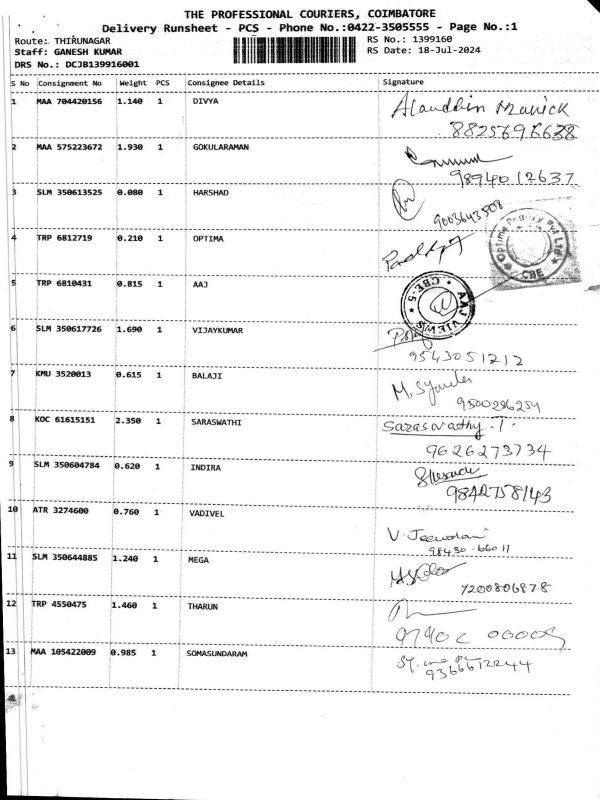 THE PROFESSIONAL COURIERS, COIMBATORE
Delivery Runsheet - PCS - Phone No.:0422-3505555 - Page No.:1
Route: THIRUNAGAR RS No.: 1399160
Staff: GANESH KUMAR RS Date: 18-Jul-2024
DRS No.: DCJB139916001
S No Consignment No Weight PCS Consignee Details Signature
1 MAA 704420156 1.140 1 DIVYA Alauddin Manick
2 MAA 575223672 1.930 1 GOKULARAMAN
9894012637
3 SLM 350613525 0.080 1 HARSHAD
9003643508
4 TRP 6812719 0.210 1 OPTIMA
Optima Pvt Ltd CBE
5 TRP 6810431 0.815 1 AAJ
AAJ VIEWS CBE-5
6 SLM 350617726 1.690 1 VIJAYKUMAR
9543051212
7 KMU 3520013 0.615 1 BALAJI
9500286254
8 KOC 61615151 2.350 1 SARASWATHI Saraswathy. T.
9626273734
9 SLM 350604784 0.620 1 INDIRA
9842758143
10 ATR 3274600 0.760 1 VADIVEL
V. Jeevadani
98430-66011
11 SLM 350644885 1.240 1 MEGA
7200806878
12 TRP 4550475 1.460 1 THARUN
13 MAA 105422009 0.985 1 SOMASUNDARAM
9366612244